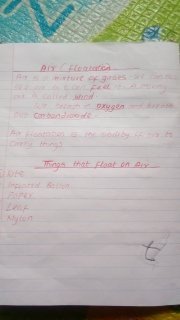 Air / Floatation
Air is a mixture of gases. We cannot
see air but can feel it. Moving
air is called wind.
We breath in oxygen and breathe
out carbondioxide
Air floatation is the ability of air to
carry things
Things that float on Air
Kite
Inflated Ballon
Paper
Leaf
Nylon